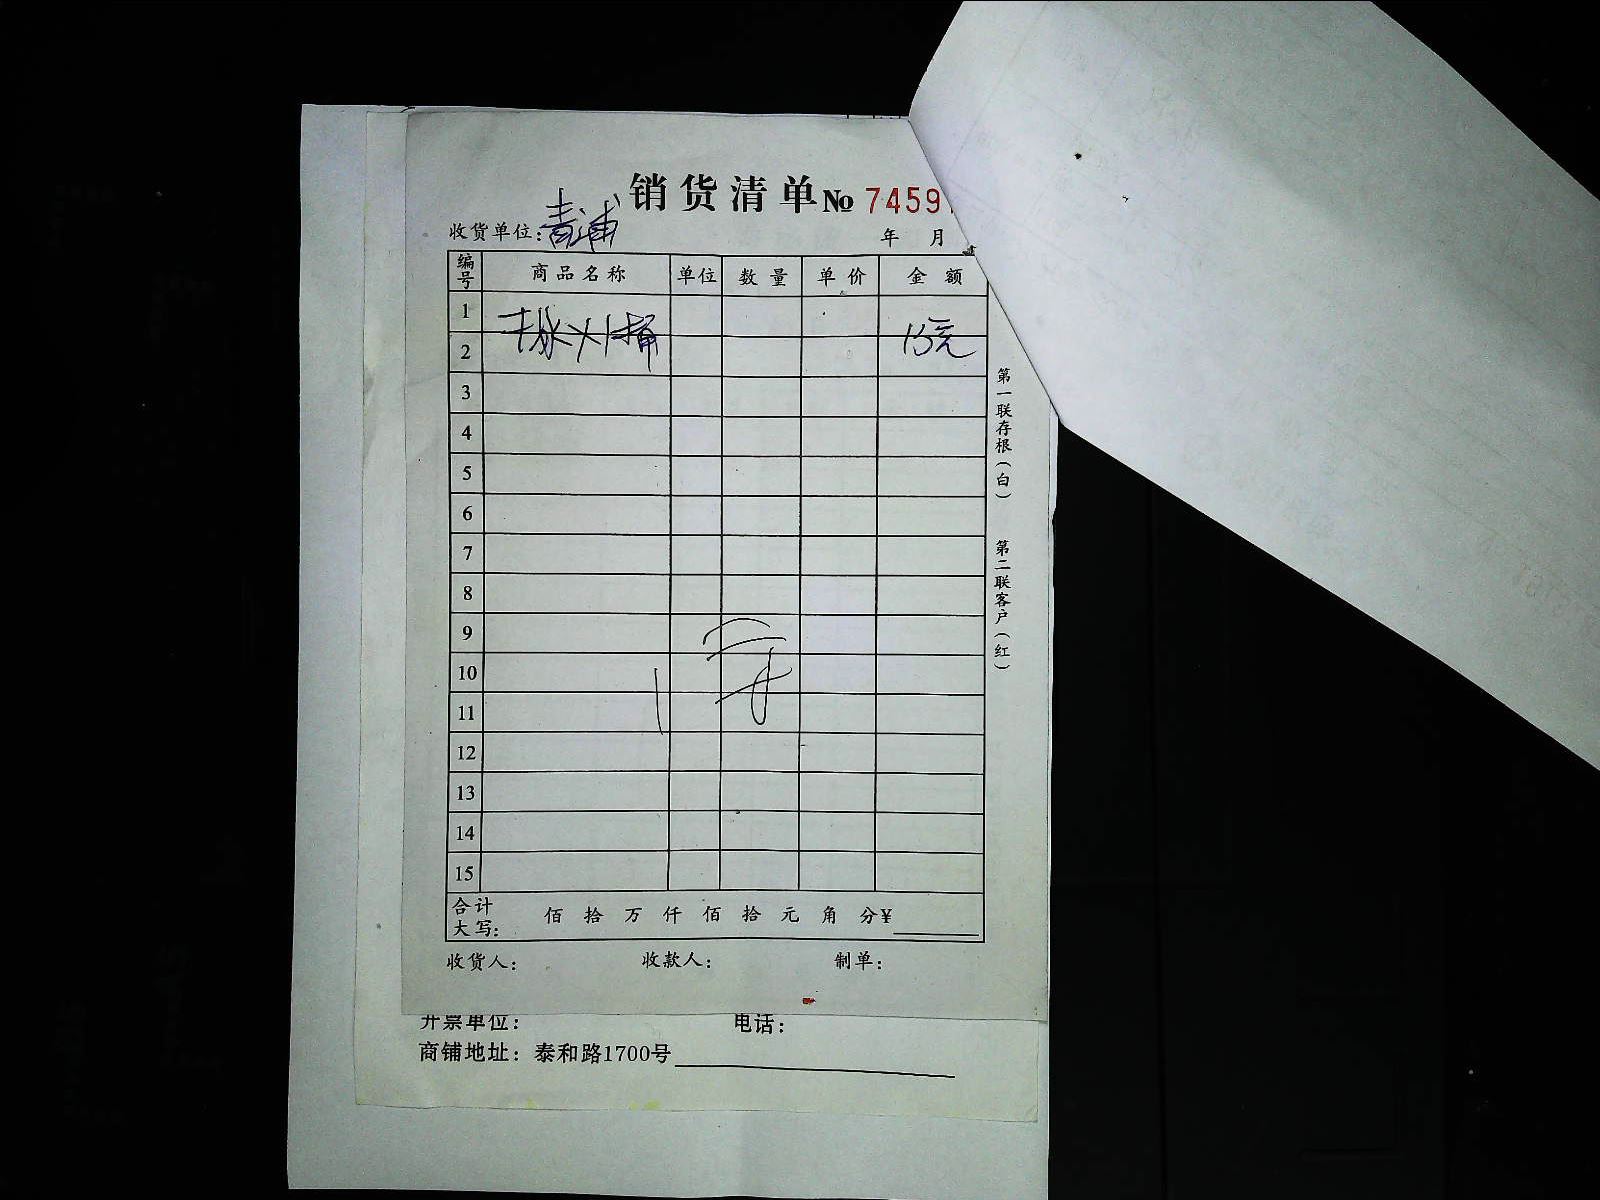 销货清单 № 7459
收货单位: 青浦
年 月
编号 商品名称 单位 数量 单价 金额
1
2 15元
3
4
5
6
7
8
9
10
11
12
13
14
15
合计大写: 佰 拾 万 仟 佰 拾 元 角 分 ¥
收货人: 收款人: 制单:
第一联存根(白)
第二联客户(红)
开票单位: 电话:
商铺地址: 泰和路1700号